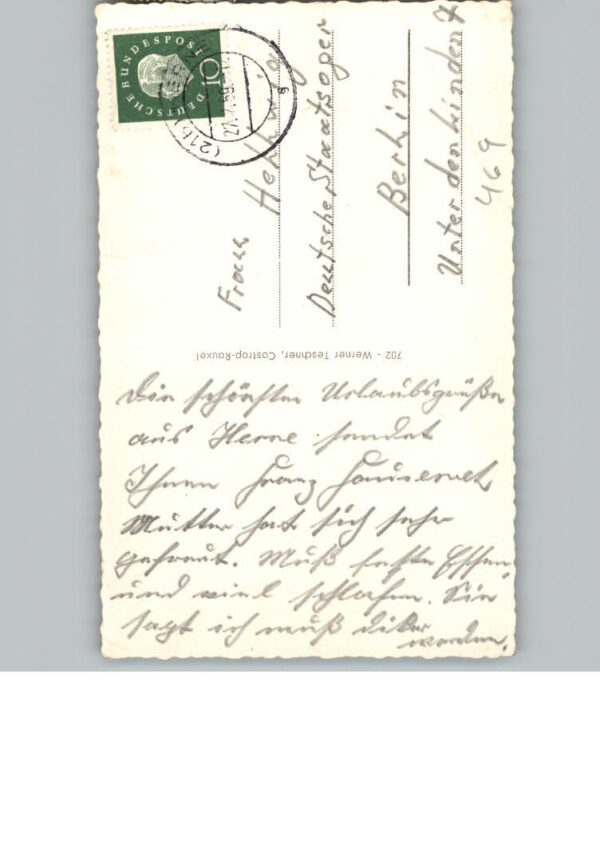 Die schönsten Urlaubsgrüße
aus Herne sendet
Ihnen Franz
Mutter hat sich sehr
gefreut. Muß feste Essen,
und viel schlafen. Sie
sagt ich muß dicker
werden.
702 - Werner Teschner, Castrop-Rauxel
Frau
Hellwig
Deutsche Staatsoper
Berlin
Unter den Linden 7
469
DEUTSCHE BUNDESPOST
10
(21b)